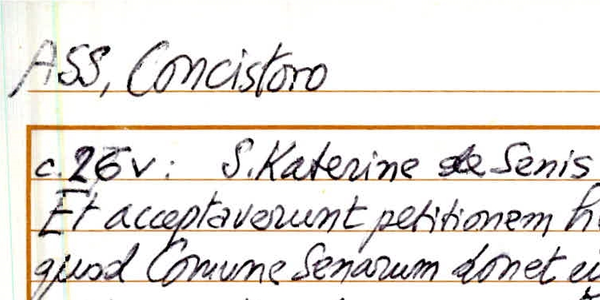 ASS, Concistoro
c. 26v: S. Katerine de Senis
Et acceptaverunt petitionem
quod Comune Senarum donet